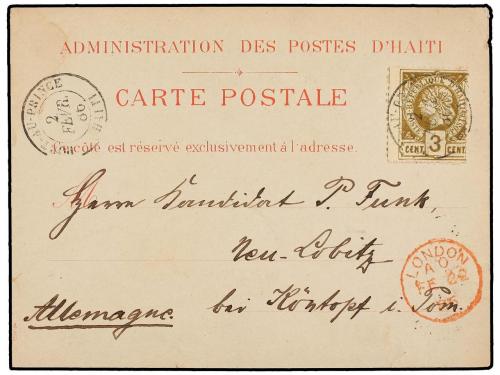 ADMINISTRATION DES POSTES D'HAITI
CARTE POSTALE
Ce côté est réservé exclusivement á l'adresse.
PORT-AU-PRINCE HAITI
2
FEVR.
90
3
CENT. CENT.
Herrn Kandidat P. Funk,
Neu-Lobitz
Allemagne. bei Köntopf i. Pom.
LONDON
A O
FE